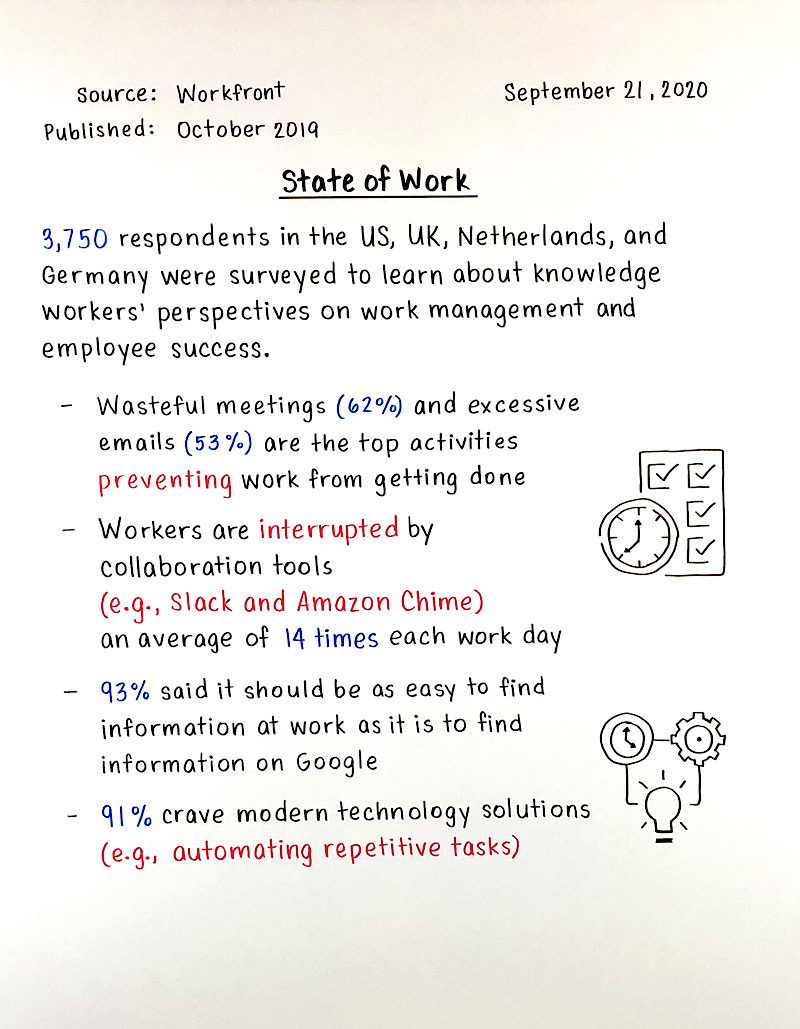 Source: Workfront
September 21, 2020
Published: October 2019
State of Work
3,750 respondents in the US, UK, Netherlands, and
Germany were surveyed to learn about knowledge
workers' perspectives on work management and
employee success.
- Wasteful meetings (62%) and excessive
emails (53%) are the top activities
preventing work from getting done
- Workers are interrupted by
collaboration tools
(e.g., Slack and Amazon Chime)
an average of 14 times each work day
- 93% said it should be as easy to find
information at work as it is to find
information on Google
- 91% crave modern technology solutions
(e.g., automating repetitive tasks)